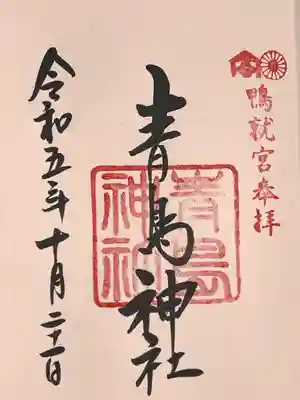 鴨就宮奉拝
青島神社
青島
神社
令和五年十月二十一日